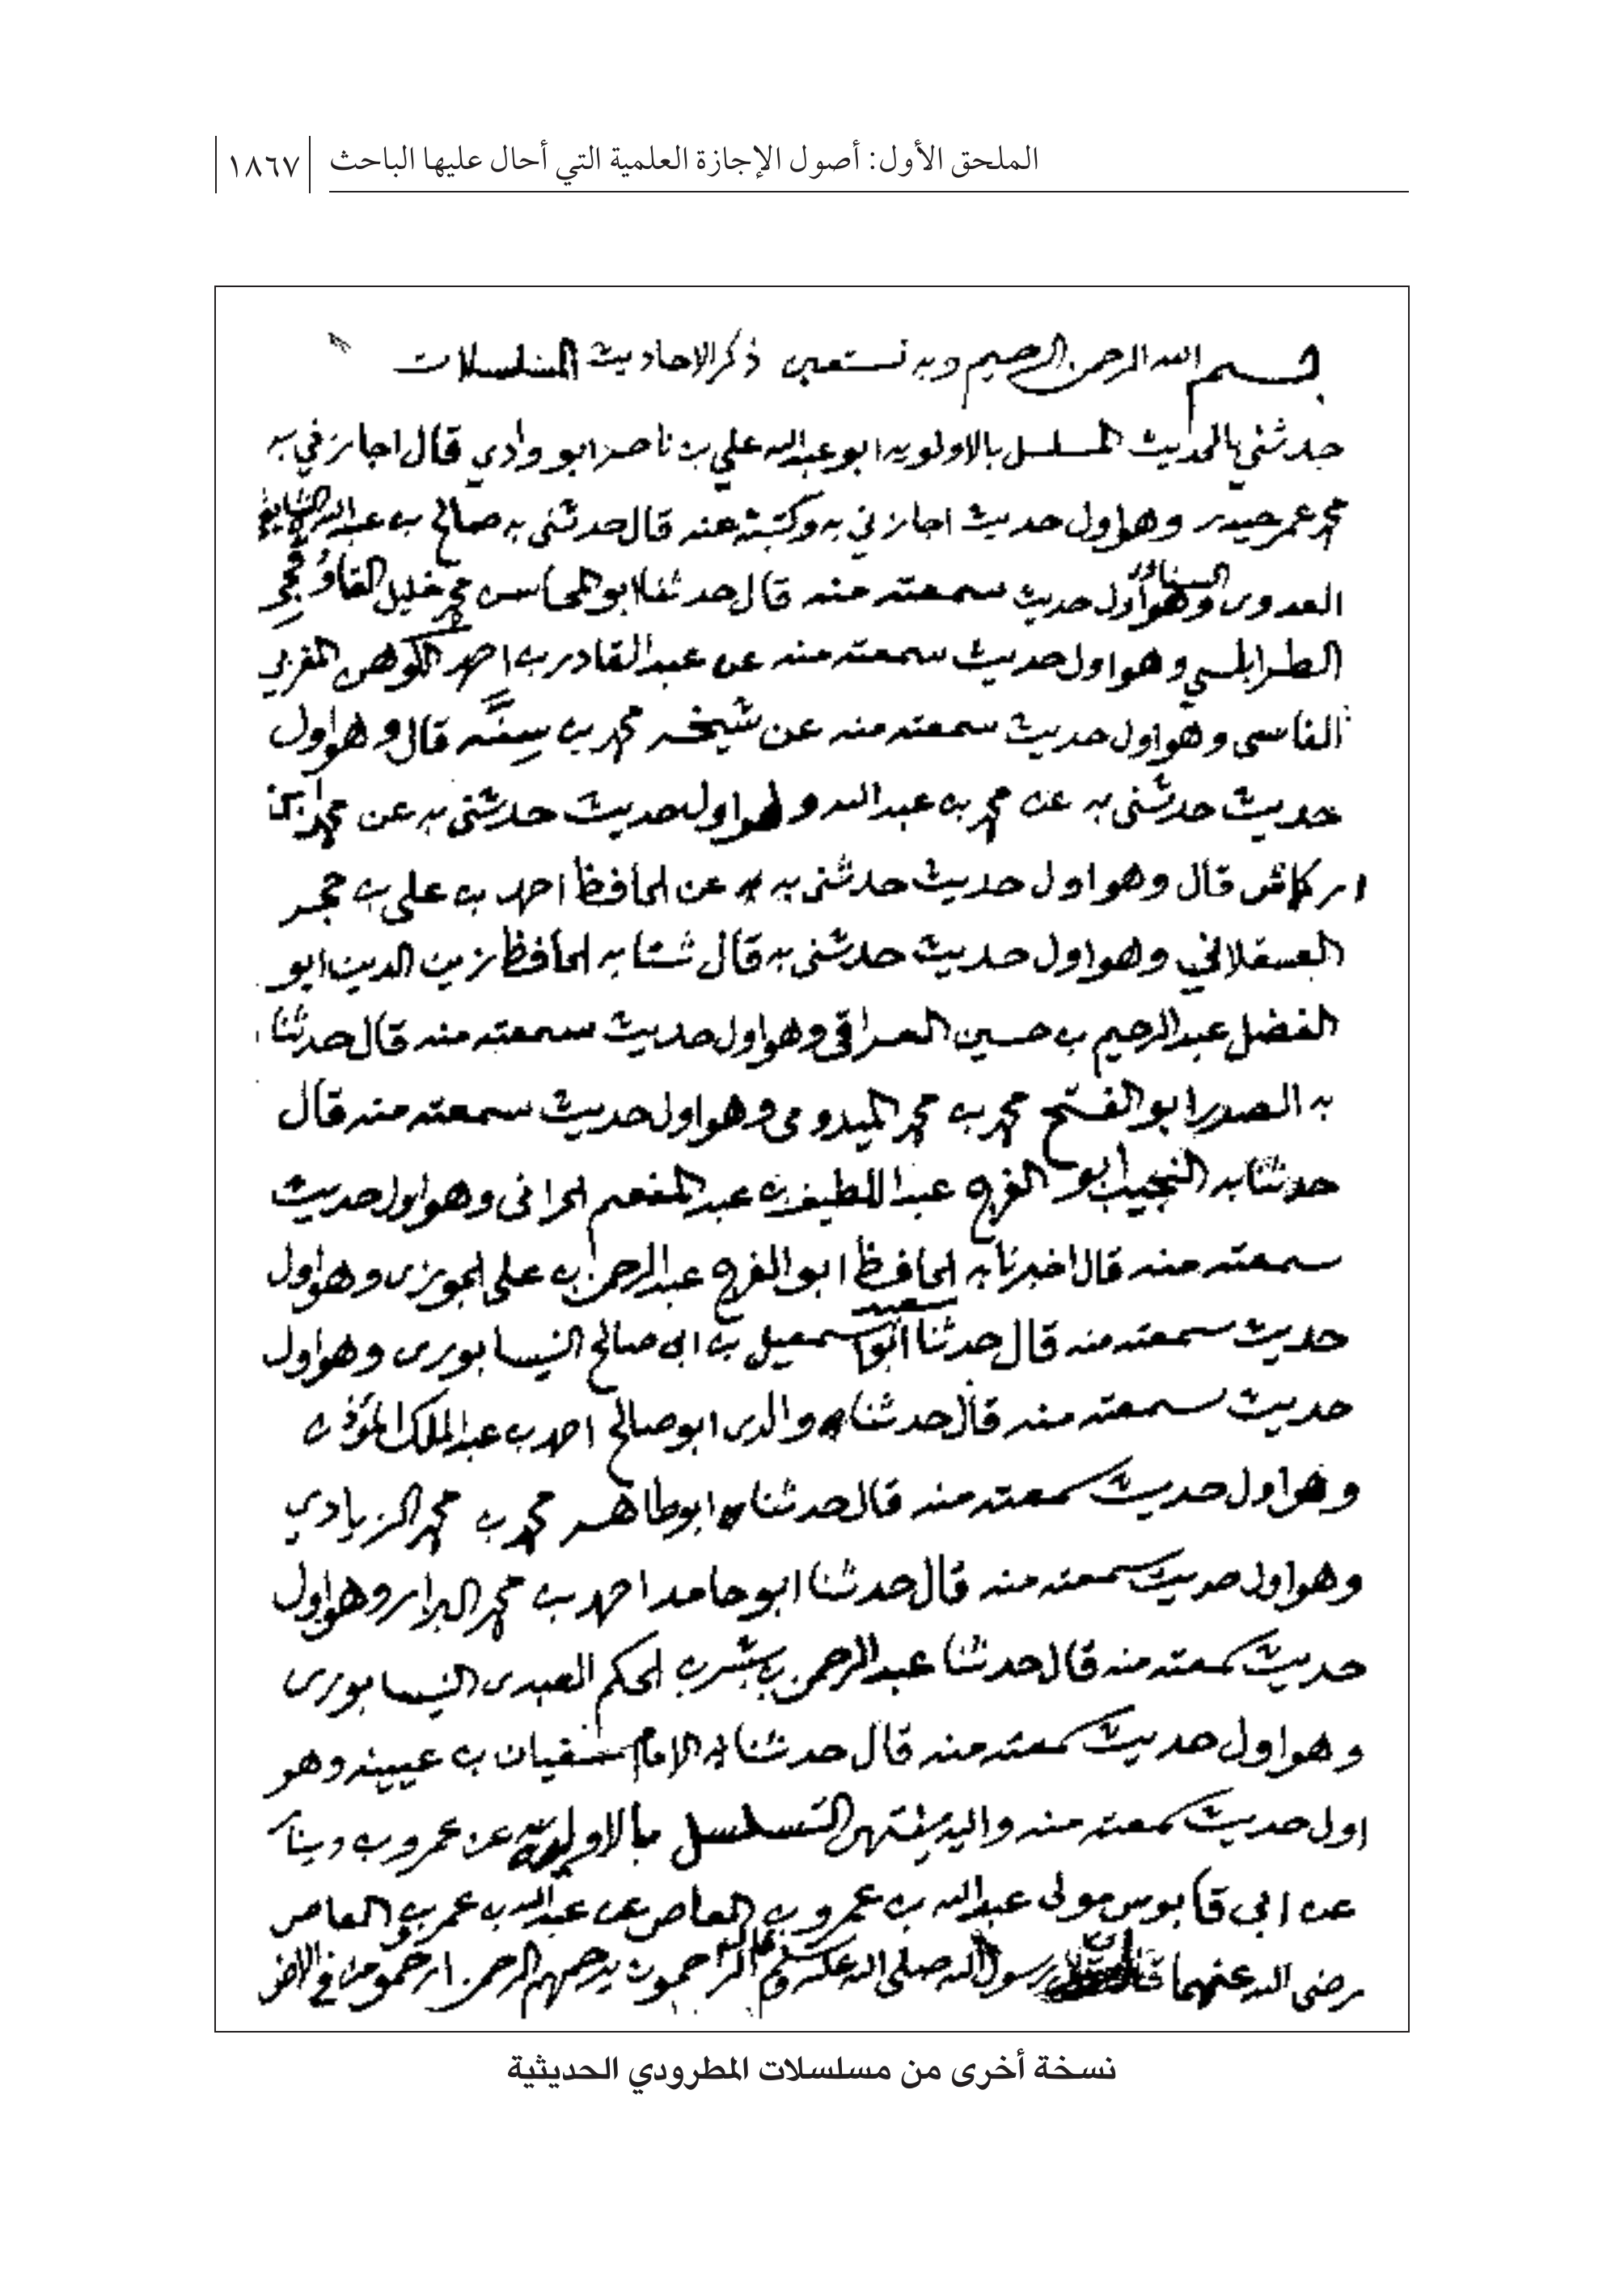 الملحق الأول: أصول الإجازة العلمية التي أحال عليها الباحث
١٨٦٧
بسم الله الرحمن الرحيم وبه نستعين ذكر الاحاديث المسلسلات
حدثني بالحديث المسلسل بالاولويه ابو عبدالله علي بن ناصر ابو وادي قال اجازني به
محمد عمر حيدر وهو اول حديث اجازني به وكتبته عنه قال حدثني به صالح بن عبدالله
العدوى وهو اول حديث سمعته منه قال حدثنا ابو المحاسن محمد خليل القاوقجي
الطرابلسي وهو اول حديث سمعته منه عن عبدالقادر بن احمد الكوهن المغربي
الفاسى وهو اول حديث سمعته منه عن شيخه محمد بن سنه قال وهو اول
حديث حدثنى به عن محمد بن عبدالله وهو اول حديث حدثنى به عن محمد ابن
اركماش قال وهو اول حديث حدثنى به عن الحافظ احمد بن على بن حجر
العسقلاني وهو اول حديث حدثنى به قال ثنا به الحافظ زين الدين ابو
الفضل عبدالرحيم بن حسين العراقى وهو اول حديث سمعته منه قال حدثنا
به الصدر ابو الفتح محمد بن محمد الميدومى وهو اول حديث سمعته منه قال
حدثنا به النجيب ابو الفرج عبداللطيف بن عبدالمنعم الحرانى وهو اول حديث
سمعته منه قال اخبرنا به الحافظ ابو الفرج عبدالرحمن بن على الجوزى وهو اول
حديث سمعته منه قال حدثنا ابو سعيد اسمعيل بن ابى صالح النيسابورى وهو اول
حديث سمعته منه قال حدثنا والدى ابو صالح احمد بن عبدالملك المؤذن
وهو اول حديث سمعته منه قال حدثنا ابو طاهر محمد بن محمد الزيادي
وهو اول حديث سمعته منه قال حدثنا ابو حامد احمد بن محمد البزار وهو اول
حديث سمعته منه قال حدثنا عبدالرحمن بن بشر بن الحكم العبدى النيسابورى
وهو اول حديث سمعته منه قال حدثنا به الامام سفيان بن عيينه وهو
اول حديث سمعته منه واليه ينتهى التسلسل بالاوليه عن عمرو بن دينار
عن ابي قابوس مولى عبدالله بن عمرو بن العاص عن عبدالله بن عمرو بن العاص
رضى الله عنهما قال رسول الله صلى الله عليه وسلم الراحمون يرحمهم الرحمن ارحموا من في الارض
نسخة أخرى من مسلسلات المطرودي الحديثية